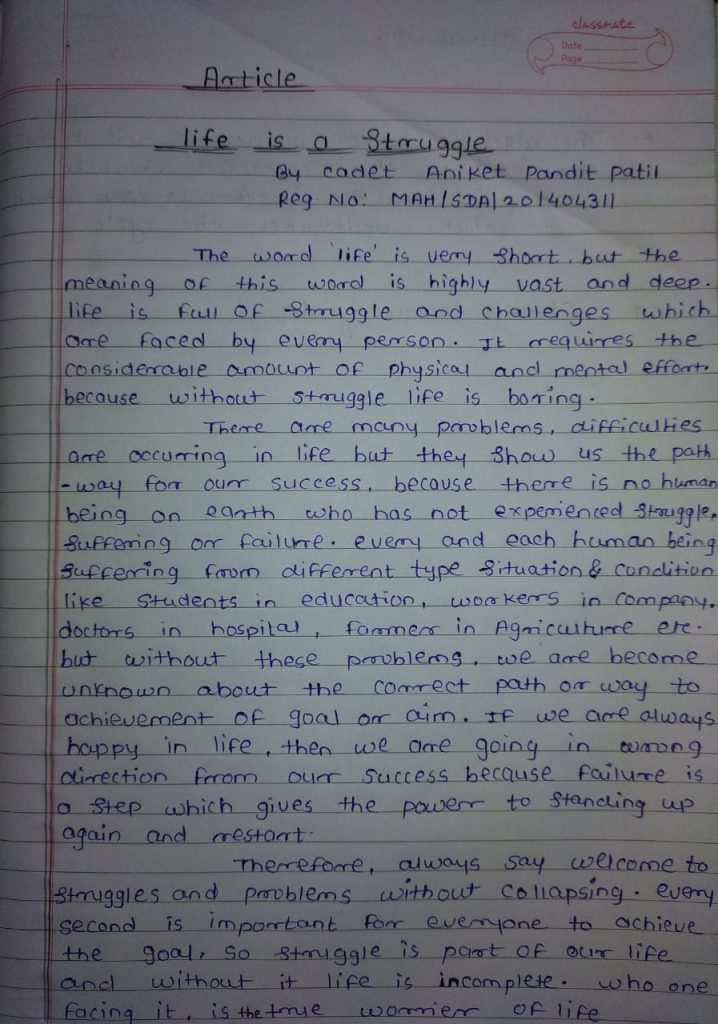 classmate
Date
Page
Article
life is a Struggle
By cadet Aniket Pandit patil
Reg. No: MAH/SDA/20/404311
The word 'life' is very short, but the
meaning of this word is highly vast and deep.
life is full of struggle and challenges which
are faced by every person. It requires the
considerable amount of physical and mental effort.
because without struggle life is boring.
There are many problems, difficulties
are occurring in life but they show us the path
-way for our success, because there is no human
being on earth who has not experienced struggle,
suffering or failure. every and each human being
suffering from different type situation & condition
like students in education, workers in company,
doctors in hospital, farmer in Agriculture etc.
but without these problems, we are become
unknown about the correct path or way to
achievement of goal or aim. If we are always
happy in life, then we are going in wrong
direction from our success because failure is
a step which gives the power to standing up
again and restart.
Therefore, always say welcome to
struggles and problems without collapsing. every
second is important for everyone to achieve
the goal, so struggle is part of our life
and without it life is incomplete. who one
facing it, is the true worrier of life